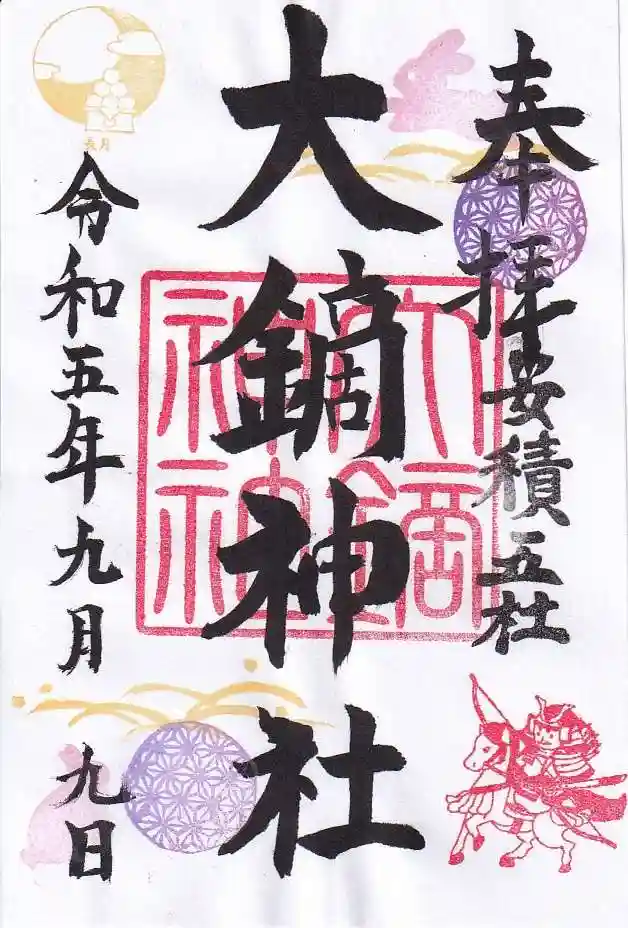 奉拝 安積五社
大鏑神社
大鏑神社
令和五年九月 九日
長月